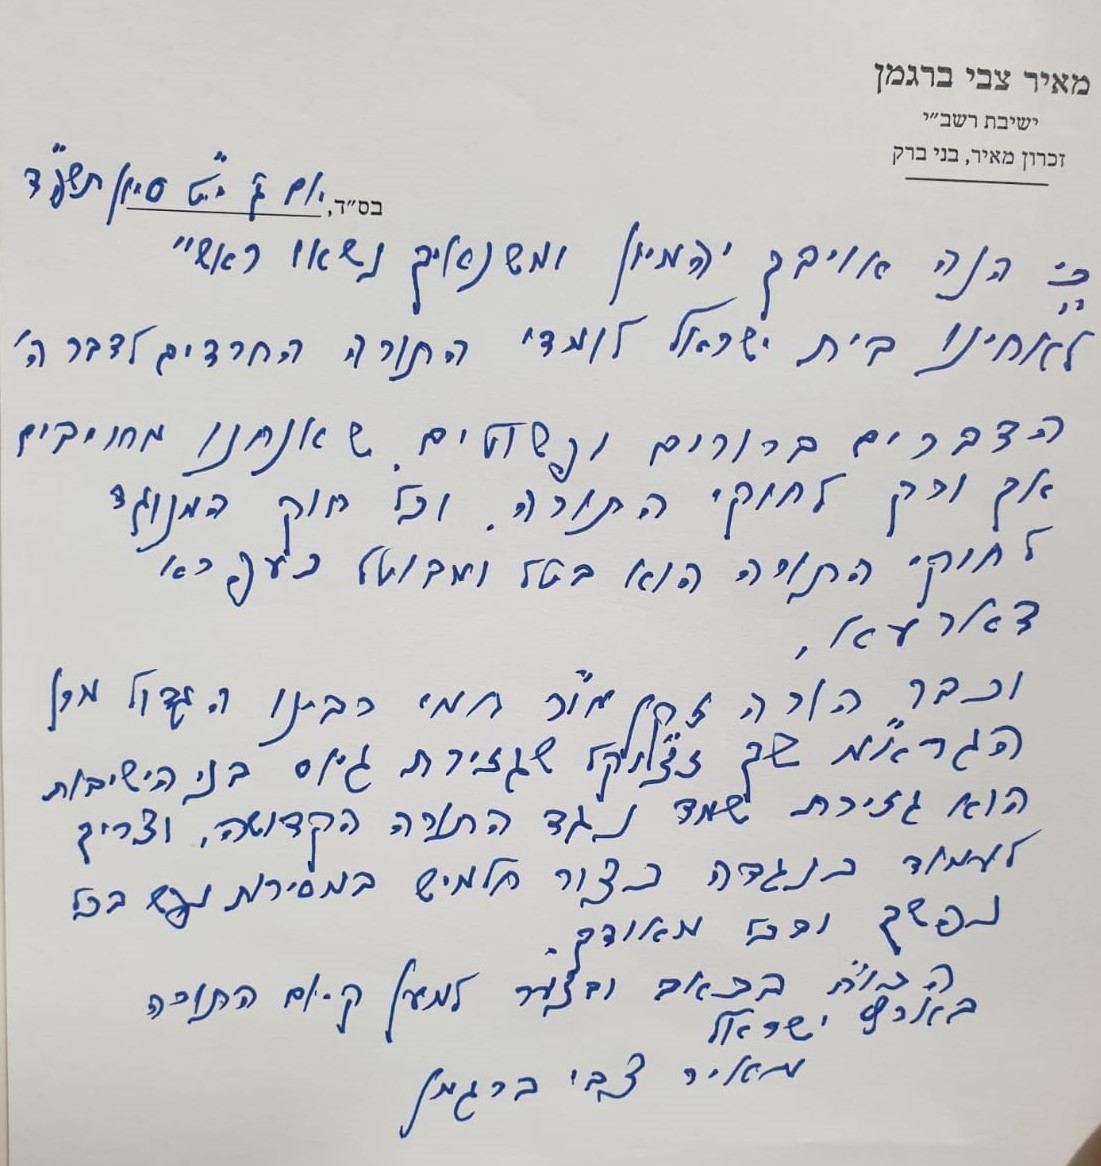 מאיר צבי ברגמן
ישיבת רשב״י
זכרון מאיר, בני ברק
בס״ד, יום ג' י״ט סיון תשע״ד
כי הנה אויבך יהמיון ומשנאיך נשאו ראש"
לאחינו בית ישראל לומדי התורה החרדים לדבר ה'
הדברים ברורים ופשוטים. שאנחנו מחויבים
אך ורק לחוקי התורה. וכל חוק המנוגד
לחוקי התורה הוא בטל ומבוטל כעפרא
דארעא,
וכבר הורה זקן מו״ר חמי רבינו הגדול מרן
הגרא״מ שך זצוק״ל שגזירת גיוס בני הישיבות
הוא גזירת שמד נגד התורה הקדושה, וצריך
לעמוד כנגדה כצור חלמיש במסירות נפש בכל
נפשך ובכל מאודך.
הכו״ח בכאב ובצער למען קיום התורה
בארץ ישראל
מאיר צבי ברגמן